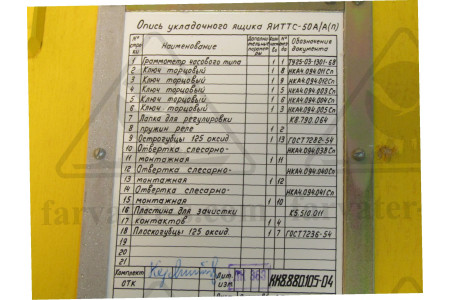 Опись укладочного ящика ЯИТТС-50А/А(п)
№ строки Наименование Количество Обозначение документа
1 Граммометр часового типа 1 1 ТУ25-03-1301-68
2 Ключ торцовый 1 8 НКА4.094.011Сп
3 Ключ торцовый 1 9 НКА4.094.010Сп
4 Ключ торцовый 1 5 НКА4.094.003Сп
5 Ключ торцовый 1 6 НКА4.094.004Сп
6 Ключ торцовый 1 3 НКА4.094.005Сп
7 Лапка для регулировки К8.790.064
8 пружин реле 1 2
9 Острогубцы 125 оксид. 1 13 ГОСТ7282-54
10 Отвертка слесарно- НКА4.094.038Сп
11 монтажная 1 11
12 Отвертка слесарно- НКА4.094.040Сп
13 монтажная 1 12
14 Отвертка слесарно- НКА4.094.041Сп
15 монтажная 1 10
16 Пластина для зачистки К5.510.011
17 контактов 1 4
18 Плоскогубцы 125 оксид. 1 7 ГОСТ7236-54
19
20
21
Комплект
ОТК
Лит. изм.
НК8.880.105-04